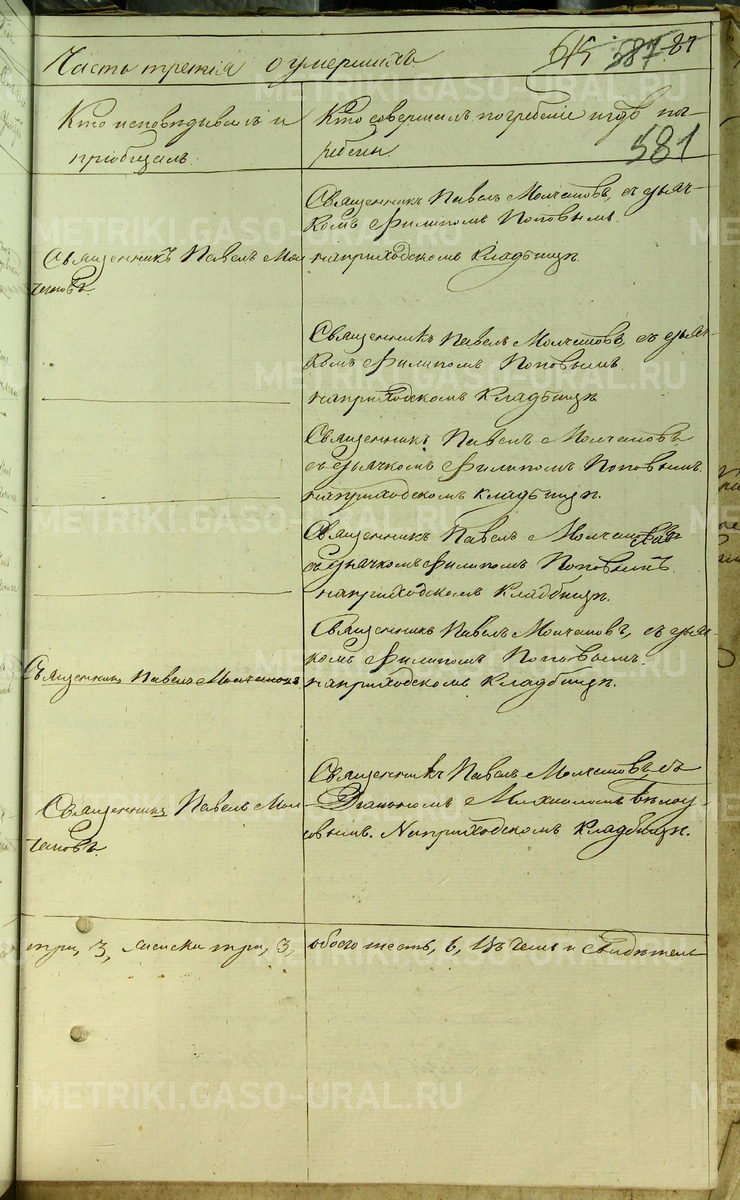 Часть третія о умершихъ
615 587 87
Кто исповѣдывалъ и
пріобщалъ.
Кто совершалъ погребеніе и гдѣ по-
гребены.
581
Священникъ Павелъ Молчановъ, съ дьяч-
комъ Филипомъ Поповымъ.
на приходскомъ кладбищѣ.
Священникъ Павелъ Мол-
чановъ.
Священникъ Павелъ Молчановъ, съ дьяч-
комъ Филипомъ Поповымъ.
на приходскомъ кладбищѣ
Священникъ Павелъ Молчановъ
съ дьячкомъ Филипомъ Поповымъ.
на приходскомъ кладбищѣ.
Священникъ Павелъ Молчановъ
съ дьячкомъ Филипомъ Поповымъ
на приходскомъ кладбищѣ.
Священникъ Павелъ Молчановъ, съ дьяч-
комъ Филипомъ Поповымъ.
на приходскомъ кладбищѣ.
Священникъ Павелъ Молчановъ
Священникъ Павелъ Молчановъ, съ
Діакономъ Михаиломъ Бѣлоу-
совымъ. На приходскомъ кладбищѣ.
Священникъ Павелъ Мол-
чановъ.
три, 3, женска три, 3, обоего шесть, 6, Въ чемъ и свидѣтель
METRIKI.GASO-URAL.RU